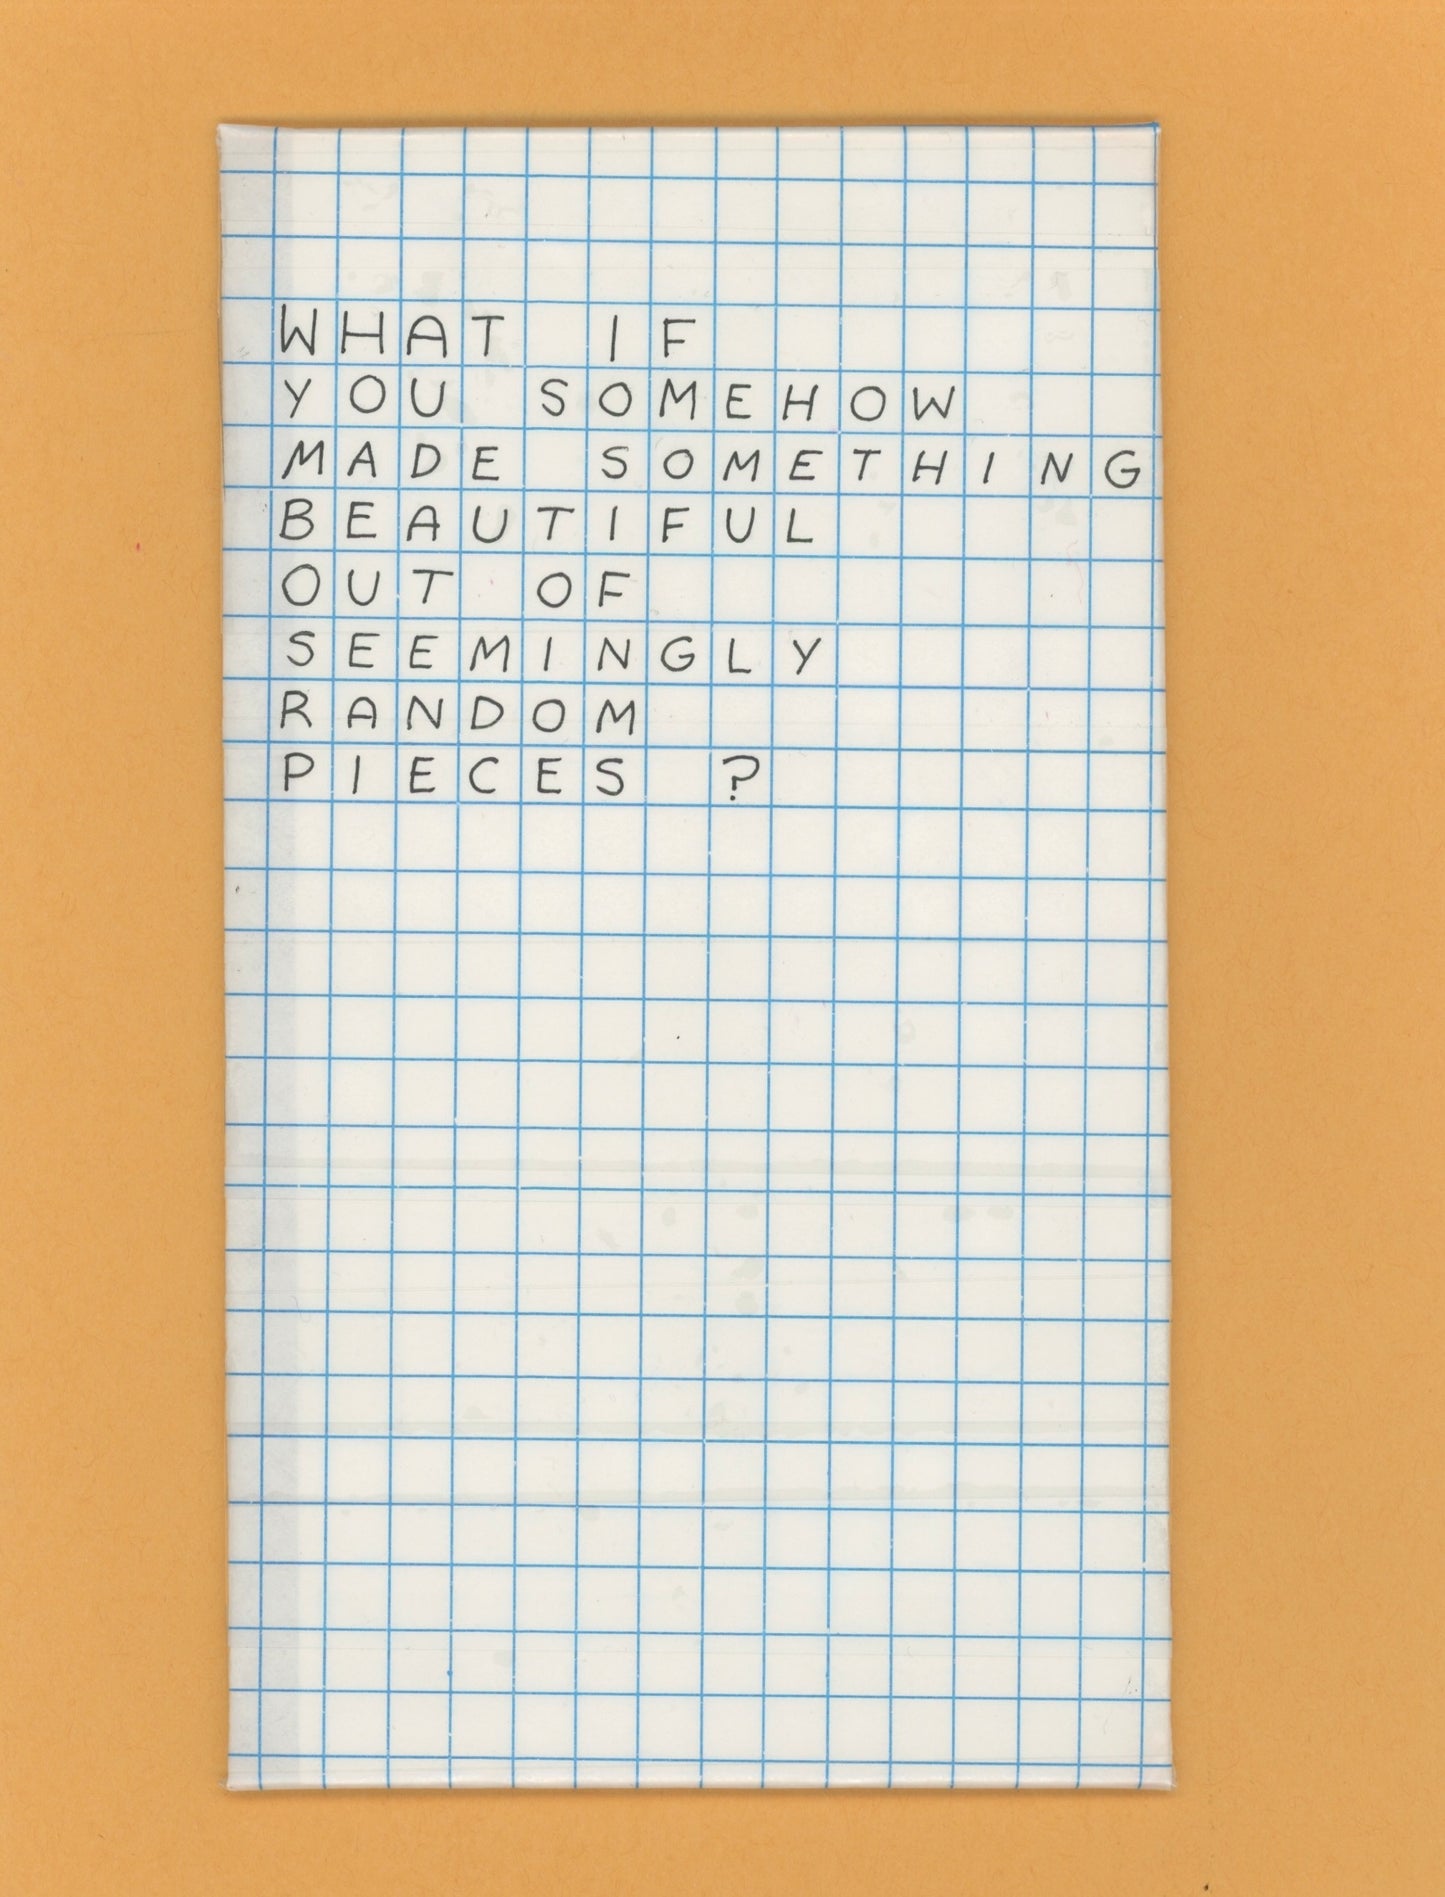 WHAT IF
YOU SOMEHOW
MADE SOMETHING
BEAUTIFUL
OUT OF
SEEMINGLY
RANDOM
PIECES ?